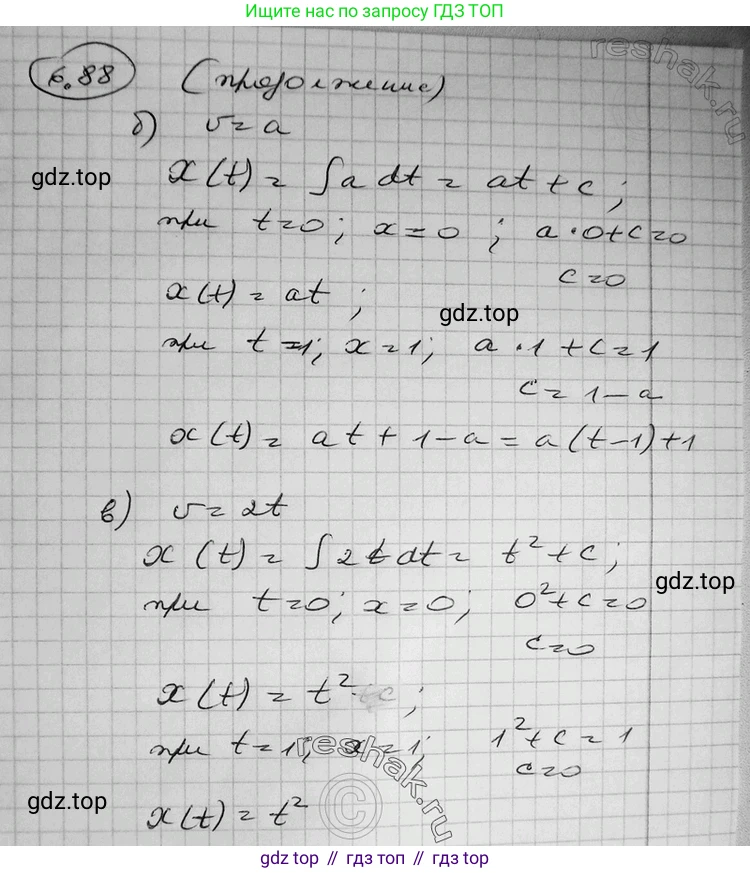 Ищите нас по запросу ГДЗ ТОП
6.88 (продолжение)
reshak.ru
б) v = a
x(t) = ∫a dt = at + c;
gdz.top
при t=0; x=0; a·0+c=0
c=0
x(t) = at;
gdz.top
при t=1; x=1; a·1+c=1
c = 1-a
x(t) = at+1-a = a(t-1)+1
в) v = 2t
x(t) = ∫2t dt = t²+c;
gdz.top
при t=0; x=0; 0²+c=0
c=0
x(t) = t²+c;
при t=1; x=1; 1²+c=1
reshak.ru
c=0
gdz.top
x(t) = t²
©
gdz топ // гдз топ // gdz top